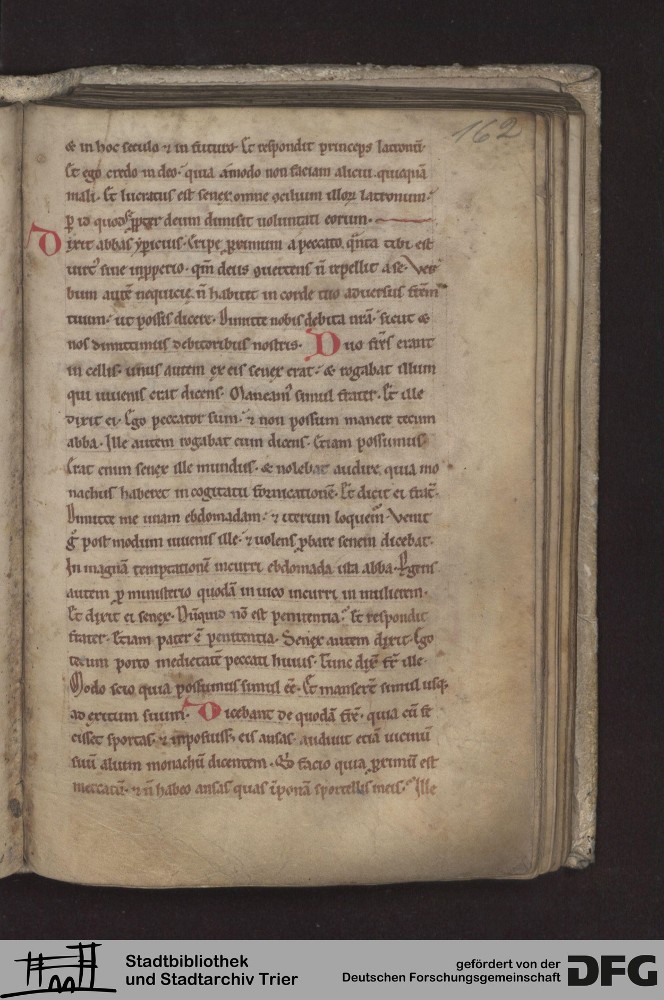 162
& in hoc seculo ⁊ in futuro. Et respondit princeps latronū.
Et ego credo in deo. quia amodo non faciam alicui quicquā
mali. Et lucratus est senex omne ꝯcilium illoꝝ latronum.
ꝑ id quod ꝓpter deum dimisit uoluntati eorum.
Dixit abbas yꝑicius. Eripe ꝓximum a peccato. qͣnta tibi est
uirtꝰ sine inꝓperio. qm̄ deus ꝯuertens n̄ repellit a se. Ver
bum autē nequicie n̄ habitet in corde tuo aduersus fr̄em
tuum. ut possis dicere. Dimitte nobis debita nr̄a. sicut &
nos dimittimus debitoribus nostris. Duo fr̄s erant
in cellis. unus autem ex eis senex erat. & rogabat illum
qui iuuenis erat dicens. Maneamꝰ simul frater. Et ille
dixit ei. Ego peccator sum. ⁊ non possum manere tecum
abba. Ille autem rogabat eum dicens. Etiam possumus.
Erat enim senex ille mundus. & nolebat audire quia mo
nachus haberet in cogitatu fornicationē. Et dicit ei frat̄.
Dimitte me unam ebdomadam. ⁊ iterum loquem̄. Venit
post modum iuuenis ille. ⁊ uolens ꝓbare senem dicebat.
In magnā temptationem incurri ebdomada ista abba. ꝑgens
autem ꝑ ministerio quodā in uico incurri in mulierem.
Et dixit ei senex. Nūquid nō est penitentia? Et respondit
frater. Etiam pater ē penitentia. Senex autem dixit. Ego
tecum porto medietatē peccati huius. Tunc dix̄ fr̄ ille.
Modo scio quia possumus simul eē. Et mansert̄ simul usq;
ad exitum suum. Dicebant de quodā fr̄e. quia cū fe
cisset sportas. ⁊ inposuiss; eis ansas. audiuit etiā uicinū
suū alium monachū dicentem. Qͥd facio quia ꝓximū est
mercatū. ⁊ n̄ habeo ansas quas īponā sportellis meis? Ille
Stadtbibliothek
und Stadtarchiv Trier
gefördert von der
Deutschen Forschungsgemeinschaft
DFG